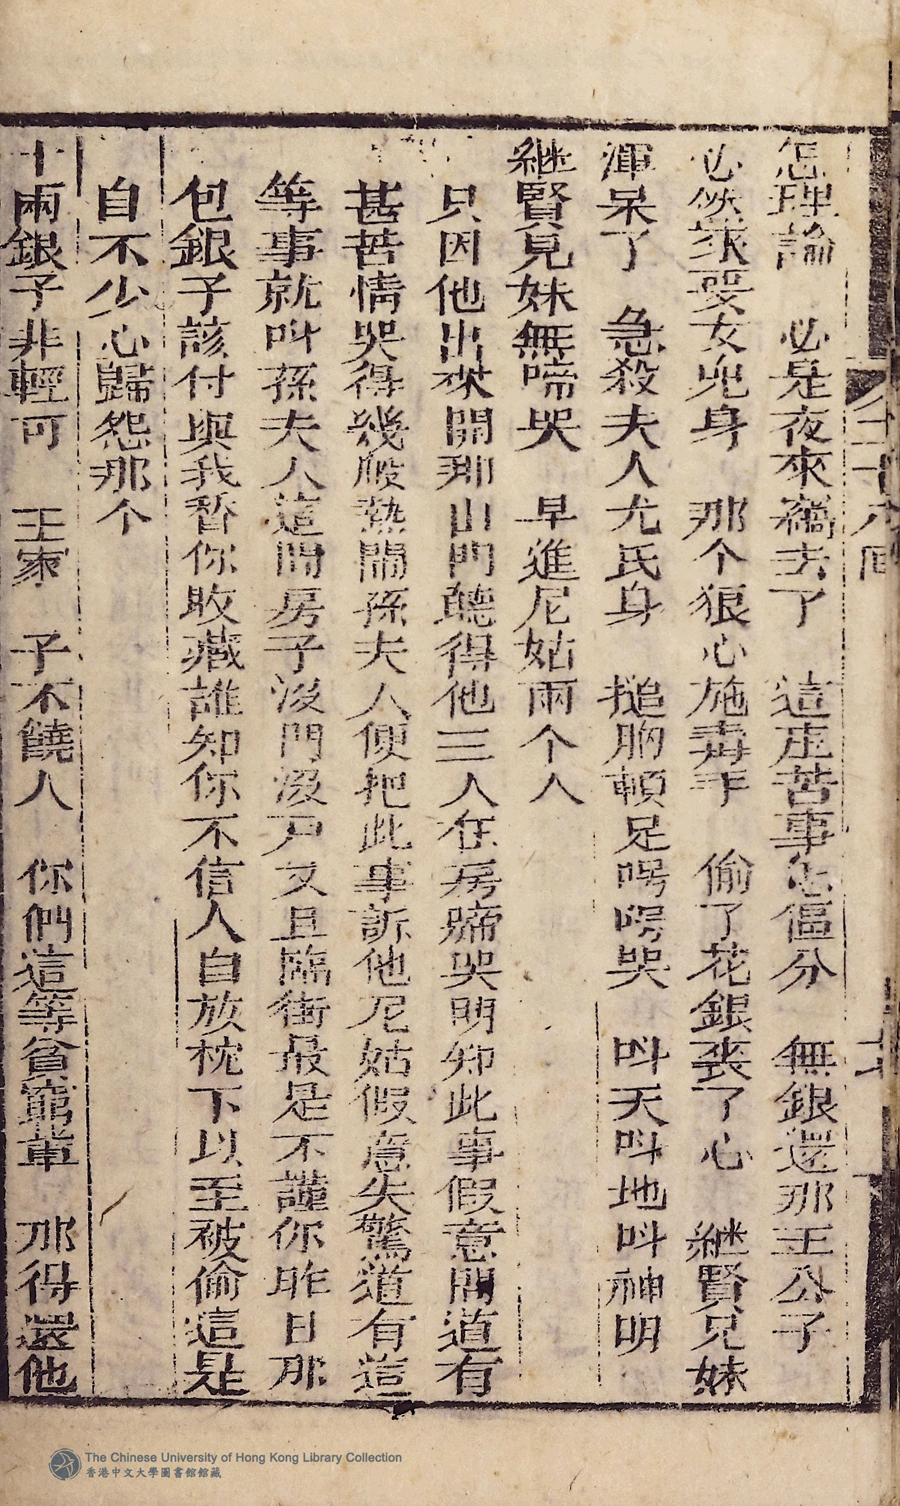 怎理論　必是夜來竊去了　這庄苦事怎區分　無銀還那王公子
必然來娶女兒身　那个狠心施毒手　偷了花銀喪了心　継賢兄妹
渾呆了　急殺夫人尤氏身　搥胸頓足啼啼哭　叫天叫地叫神明
継賢見妹無啼哭　早進尼姑兩个人
只因他出來開那山門聽得他三人在房啼哭明知此事假意問道有
甚苦情哭得幾般熱鬧孫夫人便把此事訴他尼姑假意失驚道有這
等事就叫孫夫人這間房子沒門沒户又且臨街最是不謹你昨日那
包銀子該付與我替你收藏誰知你不信人自放枕下以至被偷這是
自不少心歸怨那个
十兩銀子非輕可　王家　子不饒人　你們這等貧窮輩　那得還他
The Chinese University of Hong Kong Library Collection
香港中文大學圖書館館藏